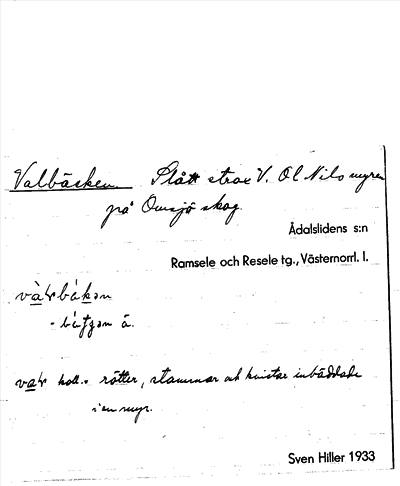 Valbäcken Slått strax V. Ol Nilsmyren
på Omsjö skog.
Ådalslidens s:n
Ramsele och Resele tg., Västernorrl. l.
koll. rötter, stammar och kvistar inbäddade
i en myr.
Sven Hiller 1933